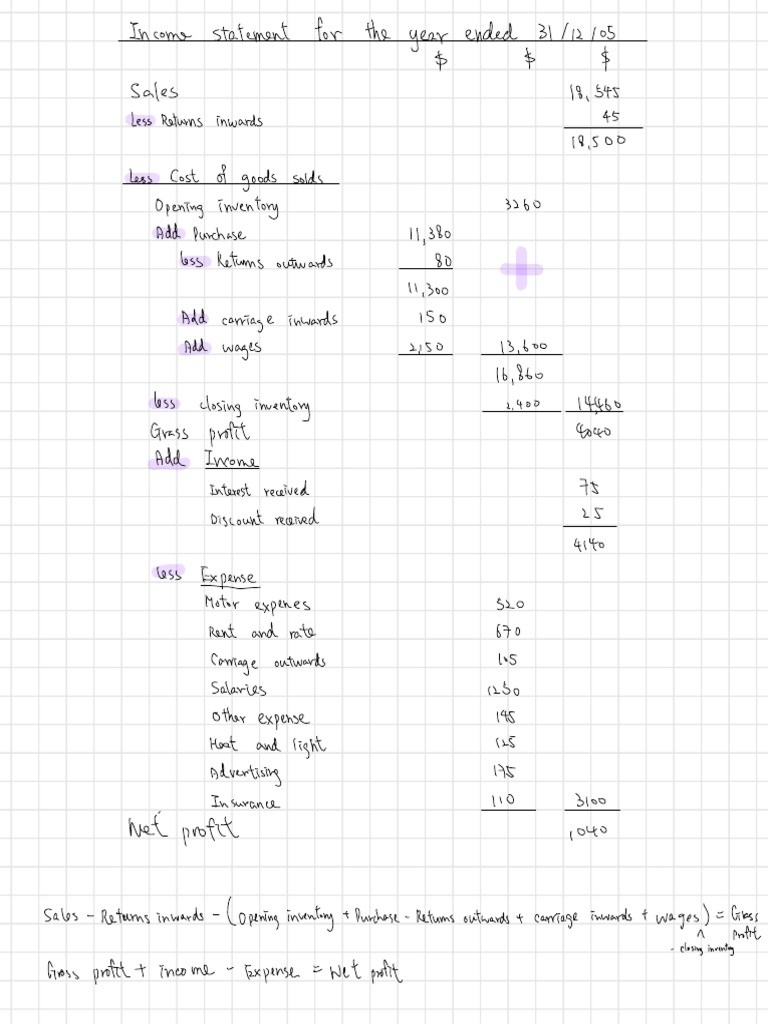 Income statement for the year ended 31/12/05
$ $ $
Sales 18,545
less Returns inwards 45
18,500
less Cost of goods solds
Opening inventory 3260
Add Purchase 11,380
less Returns outwards 80
+
11,300
Add carriage inwards 150
Add wages 2,150 13,600
16,860
less closing inventory 2,400 14,460
Gross profit 4040
Add Income
Interest received 75
Discount received 25
4140
less Expense
Motor expenes 520
Rent and rate 670
Carriage outwards 105
Salaries 1250
Other expense 145
Heat and light 125
Advertising 175
Insurance 110 3100
Net profit 1,040
Sales - Returns inwards - (Opening inventory + Purchase - Returns outwards + carriage inwards + wages) = Gross profit
^ - closing inventory
Gross profit + income - Expense = Net profit